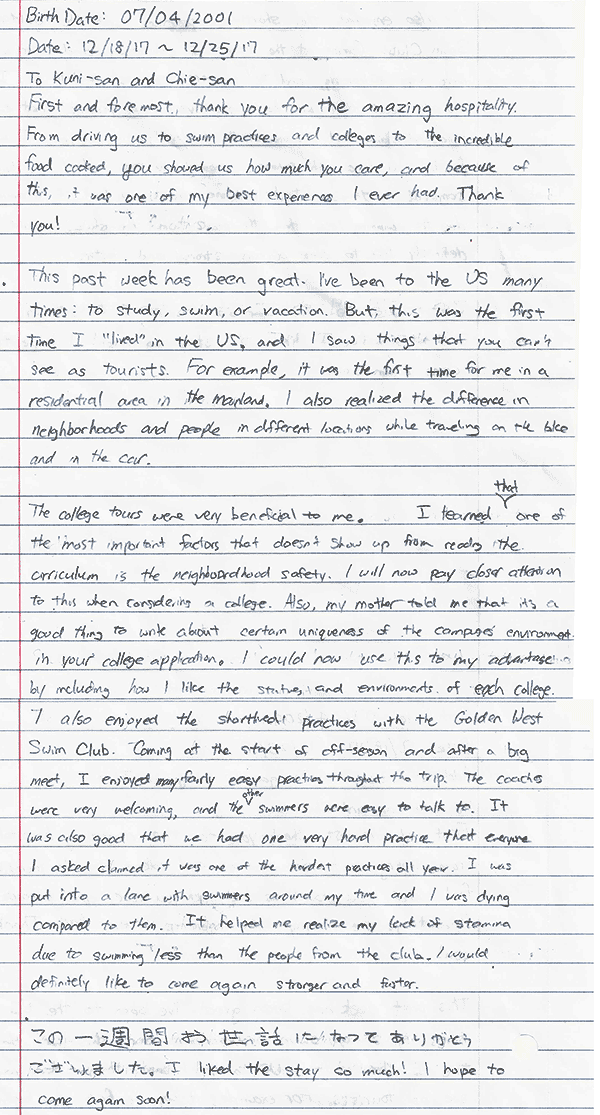 Birth Date: 07/04/2001
Date: 12/18/17 ~ 12/25/17
To Kuni-san and Chie-san
First and foremost, thank you for the amazing hospitality.
From driving us to swim practices and colleges to the incredible
food cooked, you showed us how much you care, and because of
this, it was one of my best experiences I ever had. Thank
you!
This past week has been great. I've been to the US many
times: to study, swim, or vacation. But, this was the first
time I "lived" in the US, and I saw things that you can't
see as tourists. For example, it was the first time for me in a
residential area in the mainland. I also realized the difference in
neighborhoods and people in different locations while traveling on the bike
and in the car.
The college tours were very beneficial to me. I learned that one of
the most important factors that doesn't show up from reading the
curriculum is the neighboordhood safety. I will now pay closer attention
to this when considering a college. Also, my mother told me that it's a
good thing to write about certain uniqueness of the campuses' environment
in your college application. I could now use this to my advantage
by including how I like the statues and environments of each college.
I also enjoyed the practices with the Golden West
Swim Club. Coming at the start of off-season and after a big
meet, I enjoyed many fairly easy practices throughout the trip. The coaches
were very welcoming, and the other swimmers were easy to talk to. It
was also good that we had one very hard practice that everyone
I asked claimed it was one of the hardest practices all year. I was
put into a lane with swimmers around my time and I was dying
compared to them. It helped me realize my lack of stamina
due to swimming less than the people from the club. I would
definitely like to come again stronger and faster.
この一週間おう世話になってありがとう
ございました。I liked the stay so much! I hope to
come again soon!